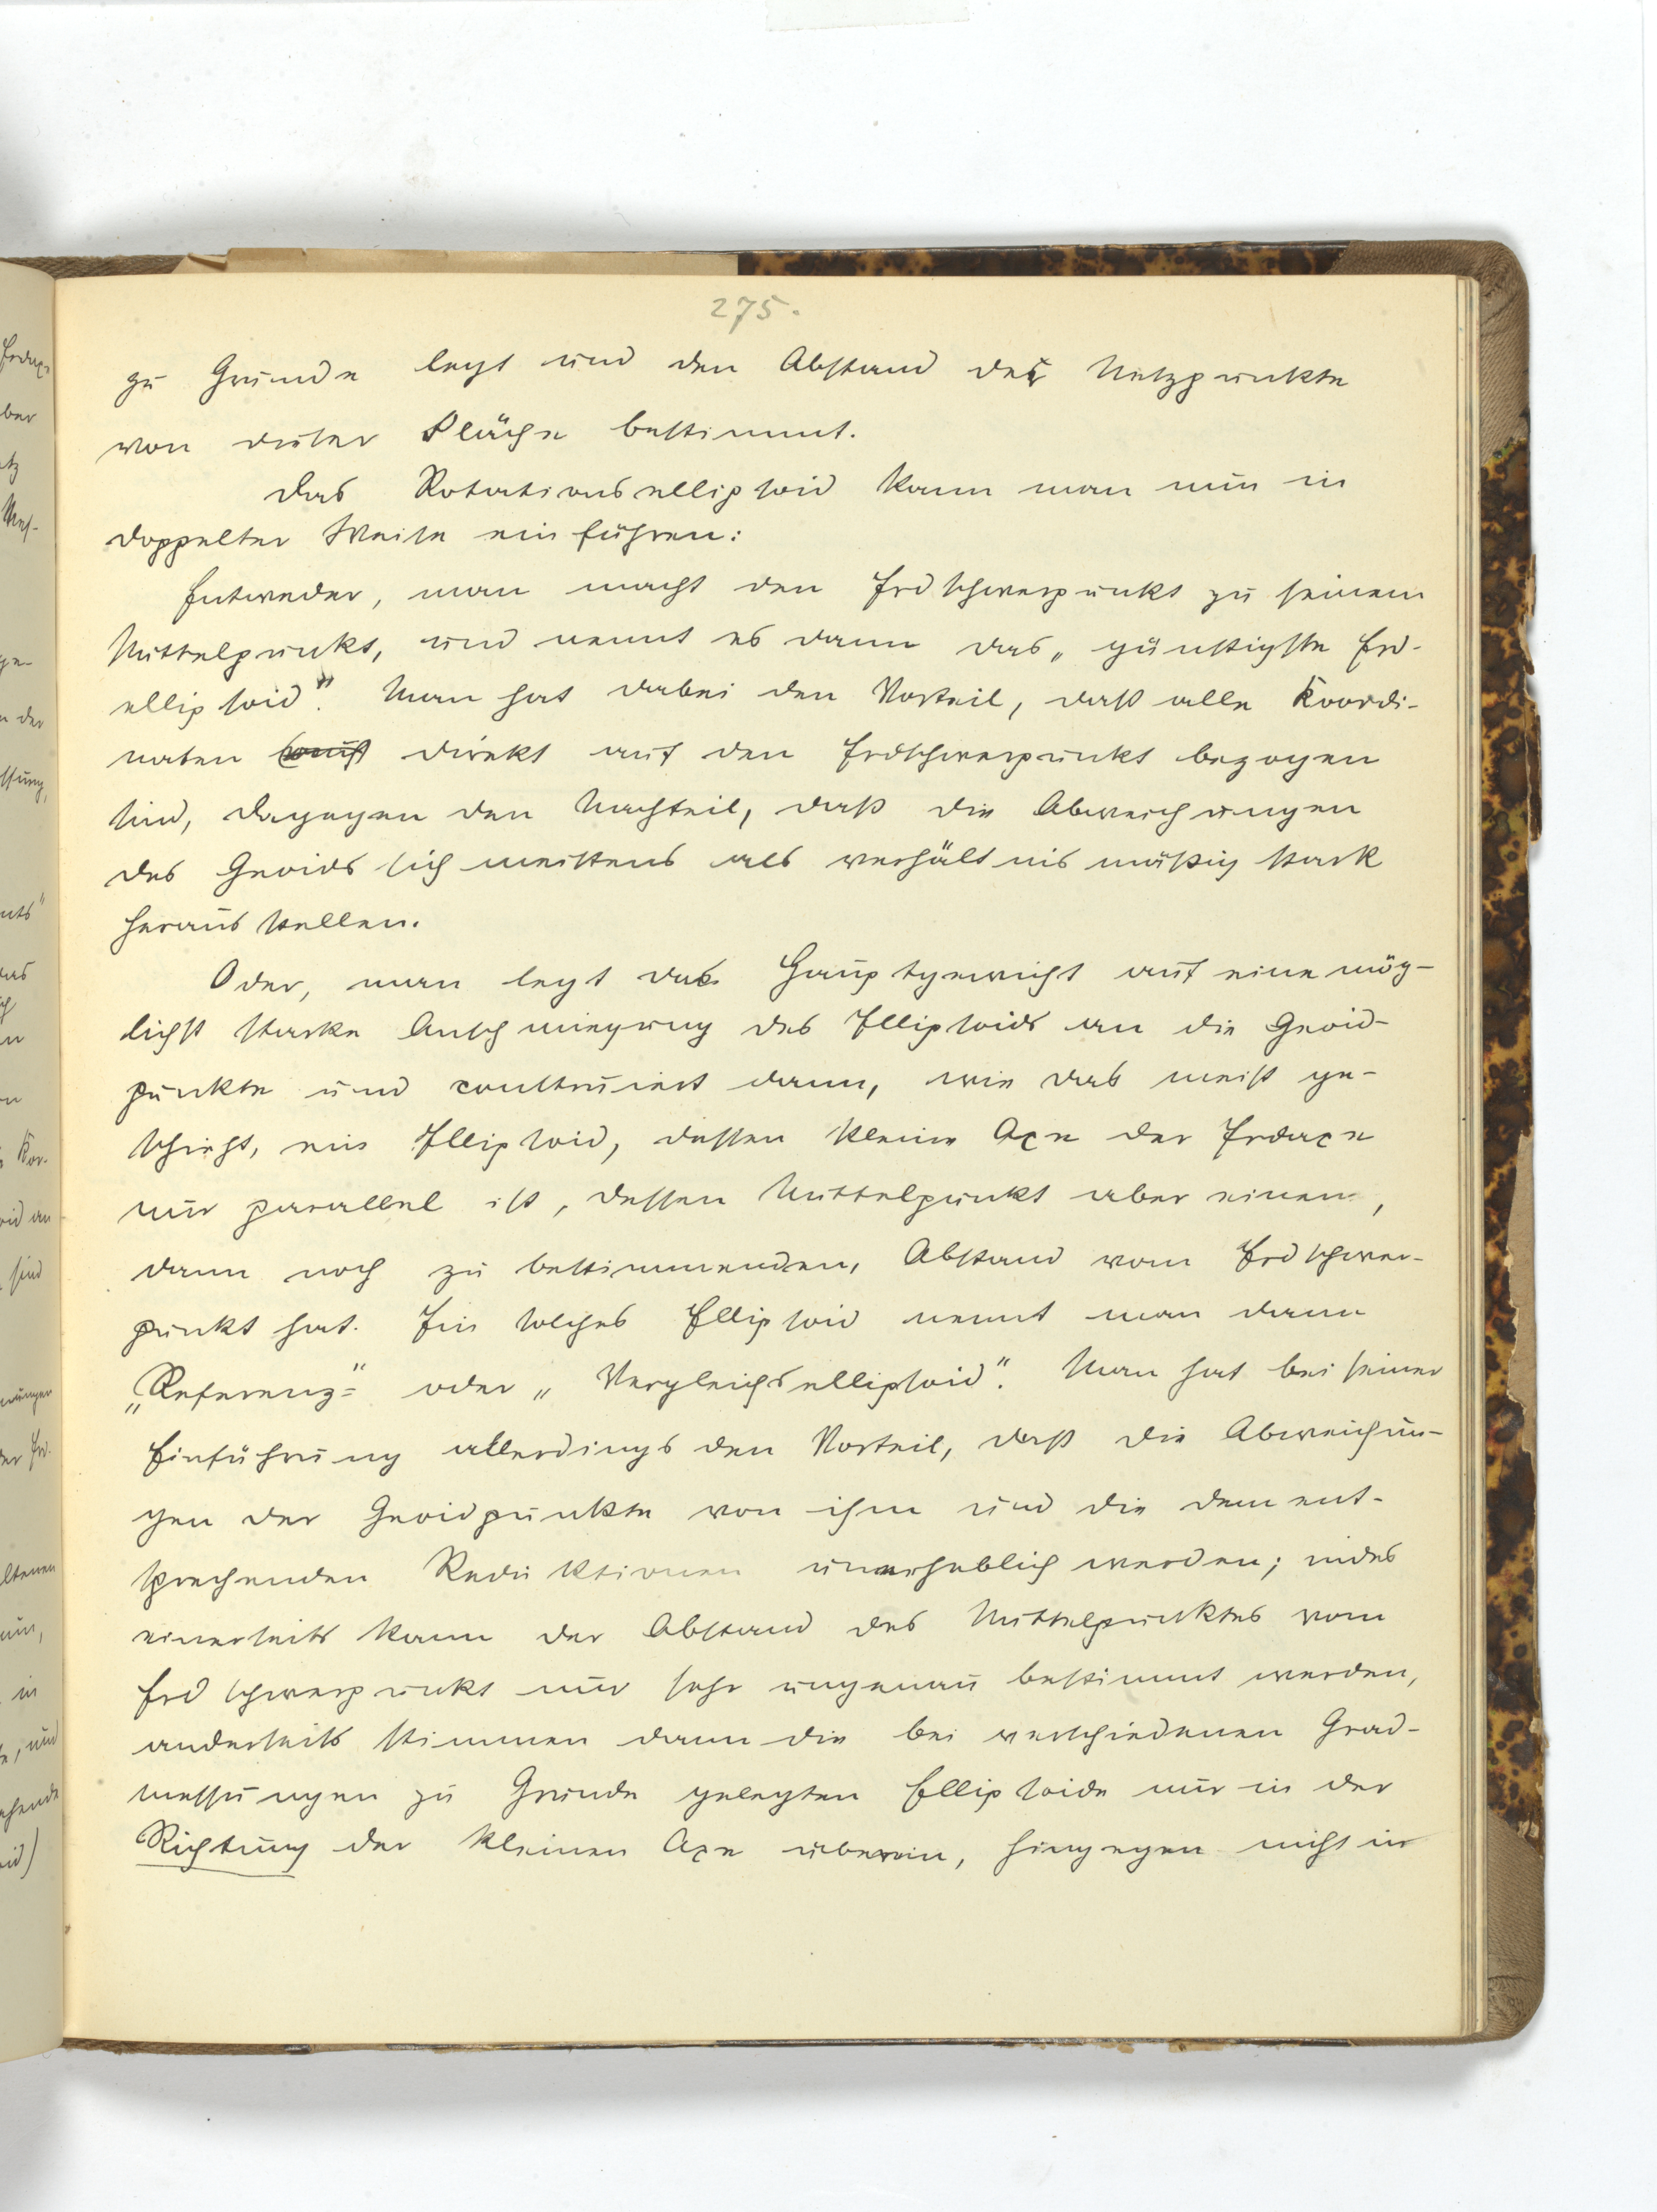 275.
zu Grunde legt und den Abstand der Netzpunkte
von dieser Fläche bestimmt.
Das Rotationsellipsoid kann man nun in
doppelter Weise einführen:
Entweder, man macht den Erdschwerpunkt zu seinem
Mittelpunkt, und nennt es dann das „günstigste Erd-
ellipsoid". Man hat dabei den Vorteil, daß alle Koordi-
naten direkt auf den Erdschwerpunkt bezogen
sind, dagegen den Nachteil, daß die Abweichungen
des Geoids sich meistens als verhältnismäßig stark
herausstellen.
Oder, man legt das Hauptgewicht auf eine mög-
lichst starke Anschmiegung des Ellipsoids an die Geoid-
punkte und construiert dann, wie das meist ge-
schieht, ein Ellipsoid, dessen kleine Axe der Erdaxe
nur parallel ist, dessen Mittelpunkt aber einen,
dann noch zu bestimmenden, Abstand vom Erdschwer-
punkt hat. Ein solches Ellipsoid nennt man dann
„Referenz-" oder „Vergleichsellipsoid". Man hat bei seiner
Einführung allerdings den Vorteil, daß die Abweichun-
gen der Geoidpunkte von ihm und die dement-
sprechenden Reduktionen unerheblich werden; indes
einerseits kann der Abstand des Mittelpunktes vom
Erdschwerpunkt nur sehr ungenau bestimmt werden,
anderseits stimmen dann die bei verschiedenen Grad-
messungen zu Grunde gelegten Ellipsoide nur in der
Richtung der kleinen Axe überein, hingegen nicht in